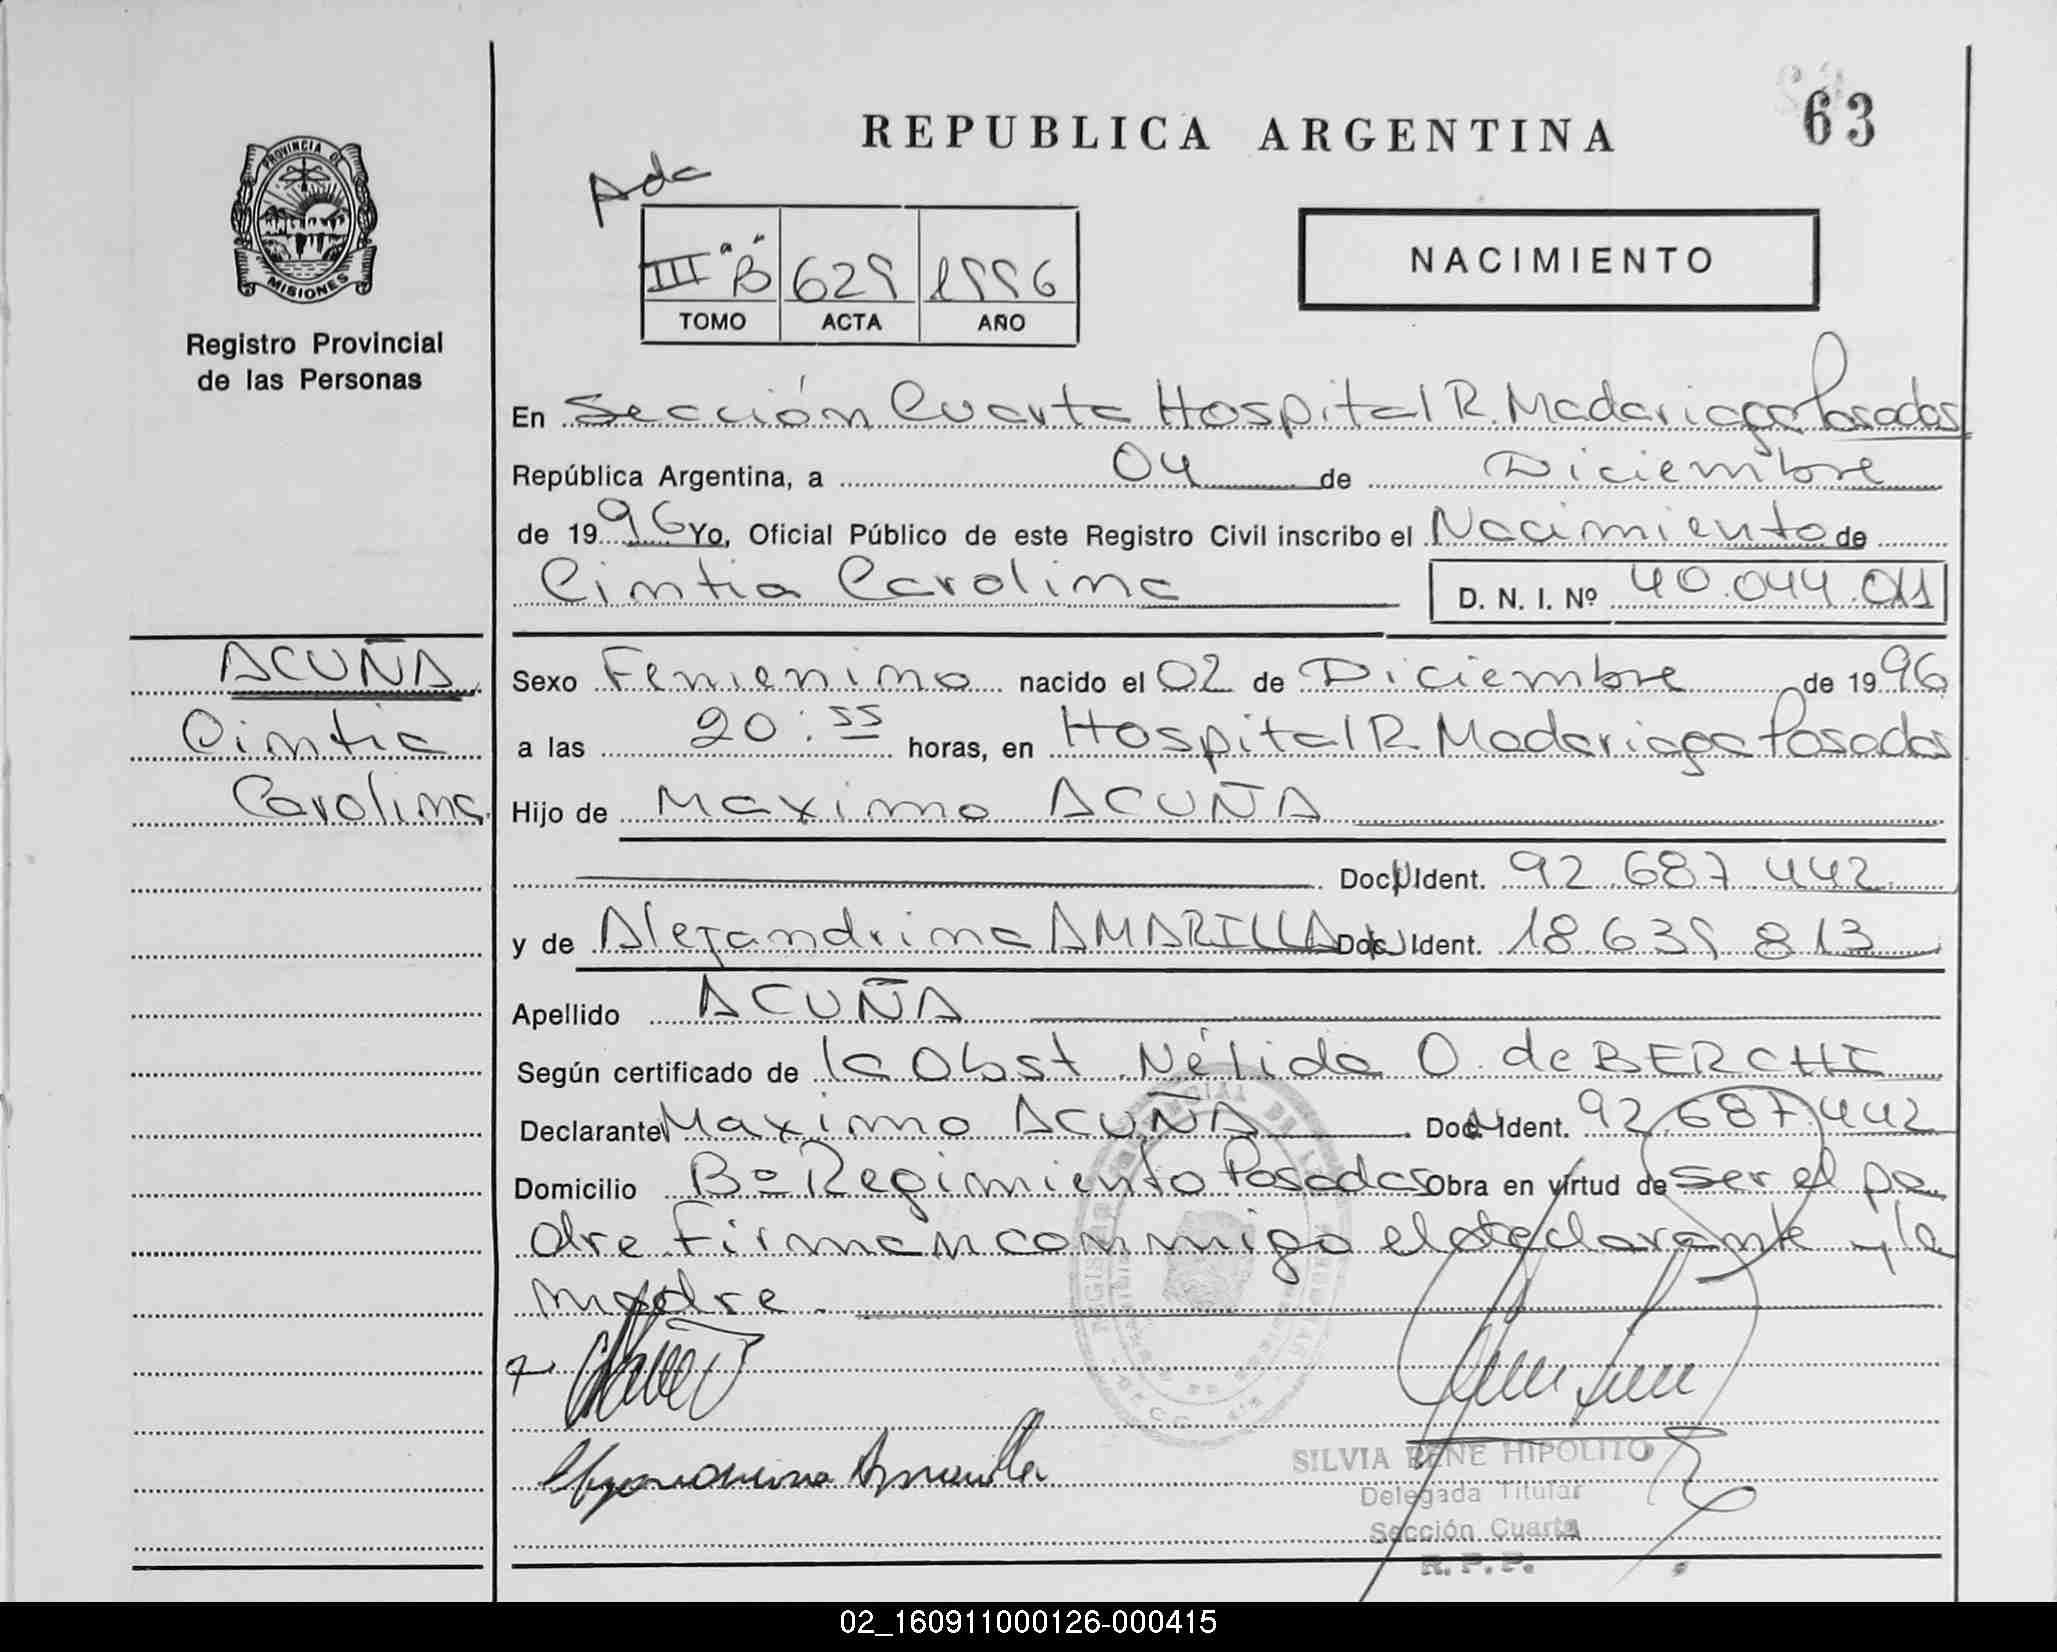 63
REPUBLICA ARGENTINA
Ada
PROVINCIA DE
MISIONES
III "B" 629 1996
TOMO ACTA AÑO
NACIMIENTO
Registro Provincial
de las Personas
En Sección Cuarta Hospital R. Madariaga Posadas
República Argentina, a 04 de Diciembre
de 1996 Yo, Oficial Público de este Registro Civil inscribo el Nacimiento de
Cintia Carolina D. N. I. Nº 40.044.011
ACUÑA
Cintia
Carolina
Sexo Femienino nacido el 02 de Diciembre de 1996
a las 20:55 horas, en Hospital R. Madariaga Posadas
Hijo de Maximo ACUÑA
Doc. Ident. 92 687 442
y de Alejandrina AMARILLA Doc. Ident. 18 639 813
Apellido ACUÑA
Según certificado de la Obst. Nélida O. de BERCHI
Declarante Maximo ACUÑA Doc. Ident. 92.687.442
Domicilio Bº Regimiento Posadas Obra en virtud de ser el pa
dre Firman conmigo el declarante y la
madre.
Alejandrina Amarilla
SILVIA RENE HIPOLITO
Delegada Titular
Sección Cuarta
R. P. P.
02_160911000126-000415